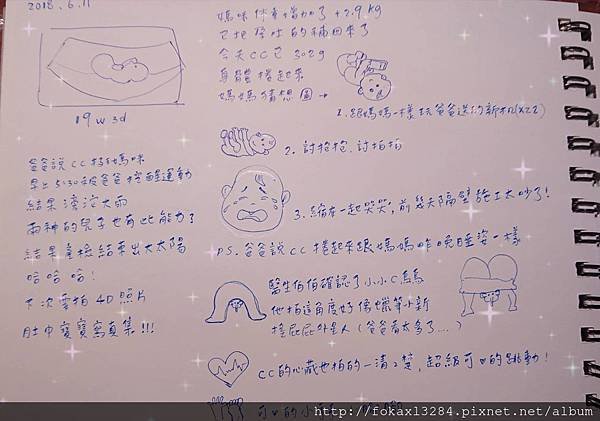 2018.6.11
19w3d
爸爸說cc捂住媽咪
早上5:30被爸爸挖醒運動
結果滂沱大雨
雨神的兒子也有此能力?
結果產檢結束出大太陽
哈哈哈!
下次要拍4D照片
肚中寶寶寫真集!!!
媽咪体重增加了+2.9kg
已把孕吐的補回來了
今天cc已302g
身體捲起來
媽媽猜想圖→
1.跟媽媽一樣玩爸爸送的新机(XZ2)
2.討抱抱.討拍拍
3.縮在一起哭哭,前幾天隔壁施工太吵了!
PS.爸爸說cc捲起來跟媽媽昨晚睡姿一樣
醫生伯伯確認了小小C鳥鳥
他拍這角度好像蠟筆小新
搖屁屁外星人(爸爸看太多了....)
cc的心臟也拍的一清2楚,超級可口的跳動!
可口的小
http://fokax13284.pixnet.net/album